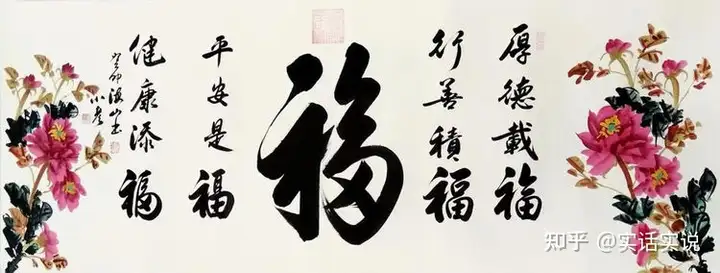 厚德載福
行善積福
福
平安是福
健康添福
癸卯
知乎 @实话实说